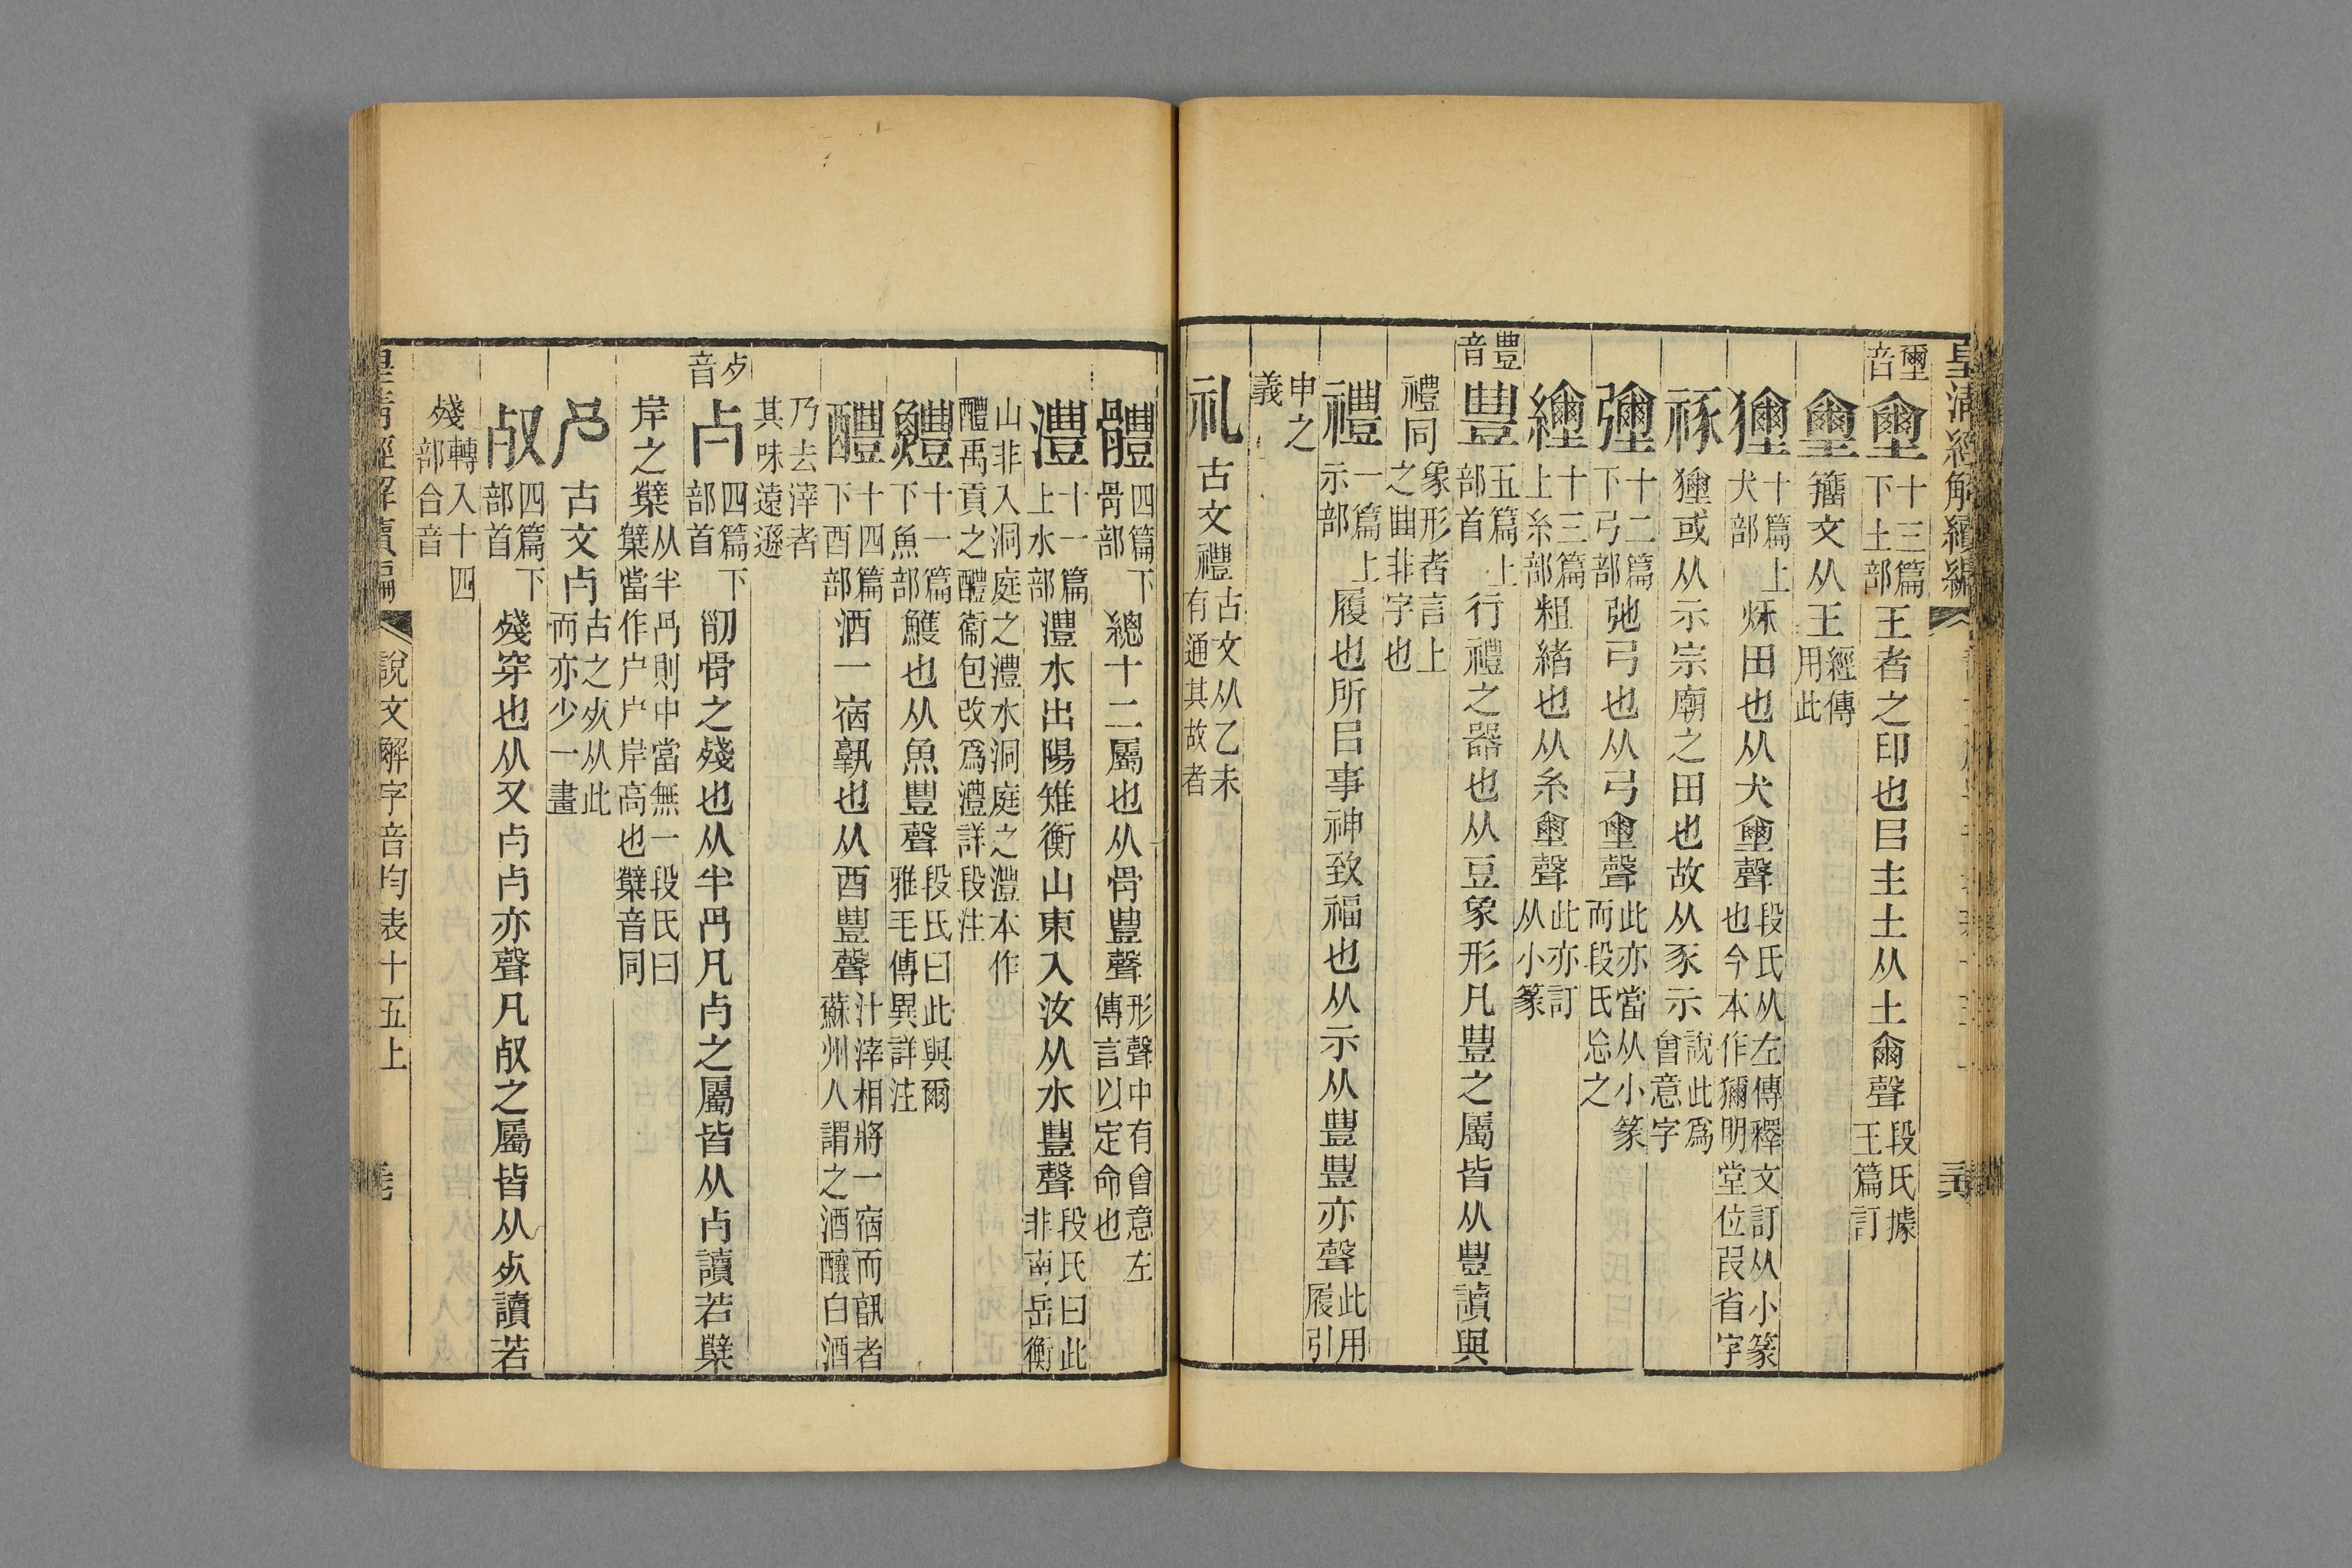 皇清經解續編
壐音 壐 十三篇下土部 王者之印也㠯主土从土爾聲 段氏據王篇訂
壐 籒文从王 經傳用此
獮 十篇上犬部 秌田也从犬壐聲 段氏从左傳釋文訂从小篆也今本作獮明堂位叚省字
䄠 獮或从示宗廟之田也故从豕示 說此爲會意字
彌 十二篇下弓部 弛弓也从弓壐聲 此亦當从小篆而段氏忩之
纗 十三篇上糸部 粗緒也从糸壐聲 此亦訂从小篆
豊音 豊 五篇上部首 行禮之器也从豆象形凡豊之屬皆从豊讀與
禮同 象形者言上之曲非字也
禮 一篇上示部 履也所㠯事神致福也从示从豊豊亦聲 此用履引
申之義
礼 古文禮 古文从乙未有通其故者
體 四篇下骨部 總十二屬也从骨豊聲 形聲中有會意左傳言以定命也
澧 十一篇上水部 澧水出陽雉衡山東入汝从水豊聲 段氏曰此非南岳衡
山非入洞庭之澧水洞庭之澧本作醴禹貢之醴衞包改爲澧詳段注
鱧 十一篇下魚部 鱯也从魚豊聲 段氏曰此與爾雅毛傳異詳注
醴 十四篇下酉部 酒一宿孰也从酉豊聲 汁滓相將一宿而孰者蘇州人謂之酒釀白酒
乃去滓者其味遠遜
歺音 歺 四篇下部首 𠛱骨之殘也从半冎凡歺之屬皆从歺讀若櫱
岸之櫱 从半冎則中當無一段氏曰櫱當作屵屵岸高也櫱音同
𡰮 古文歺 古之𣦸从此而亦少一畫
𣦻 四篇下部首 殘穿也从又歺歺亦聲凡𣦻之屬皆从𣦻讀若
殘 轉入十四部合音
皇清經解續編 說文解字音均表十五上